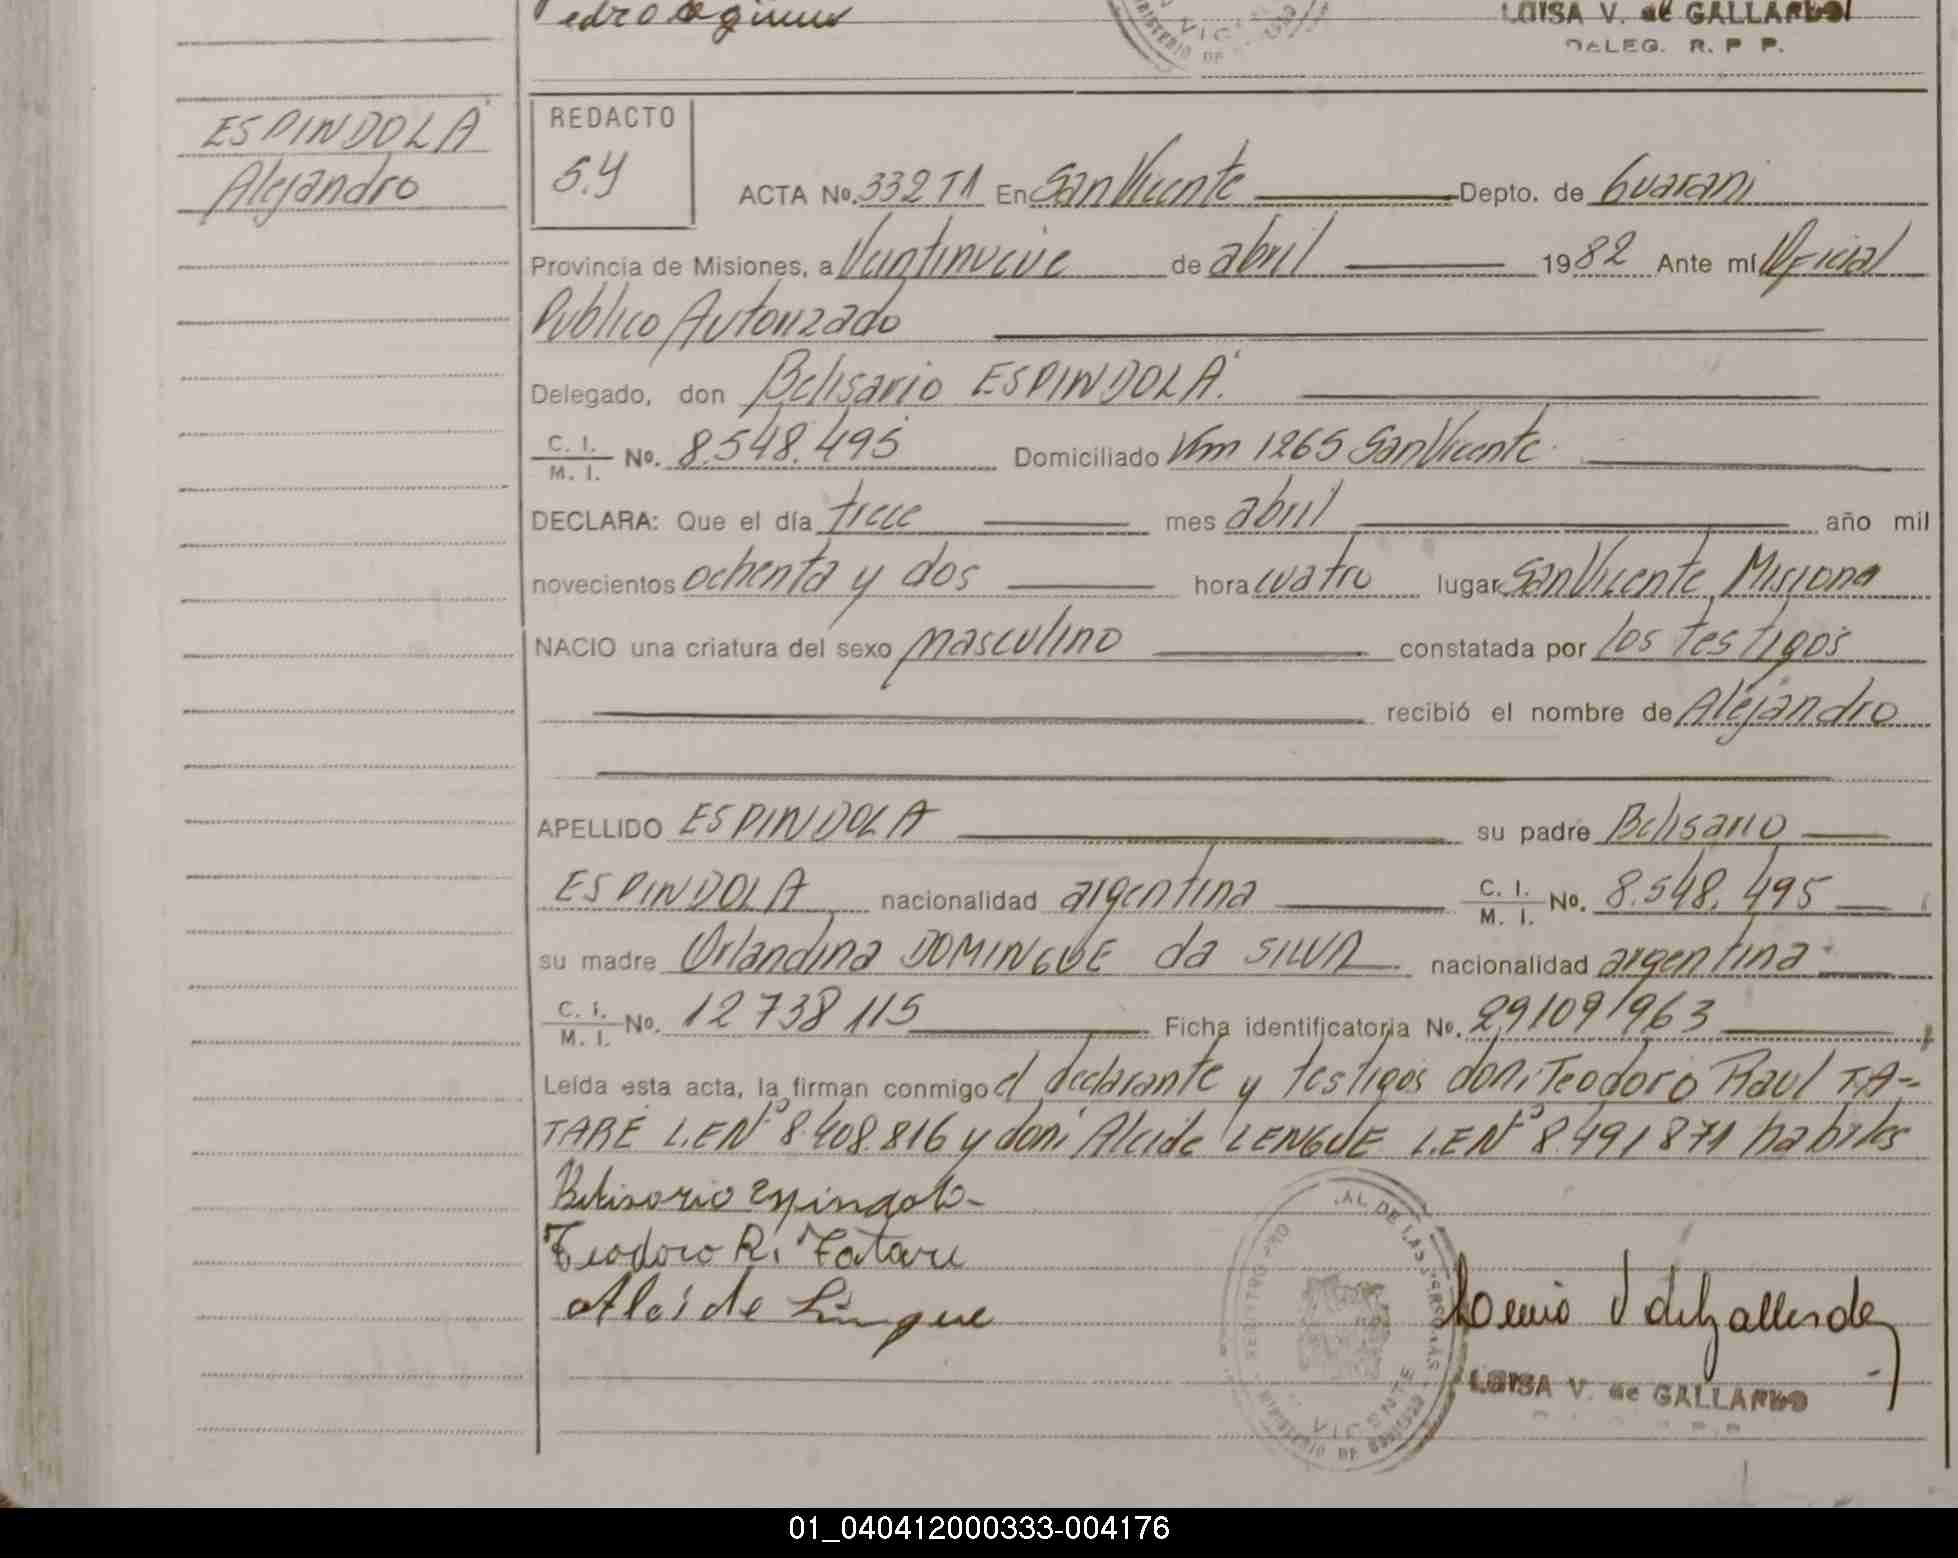 Pedro
LOISA V. de GALLARDO
DELEG. R. P. P.
ESPINDOLA
Alejandro
REDACTO
S.Y
ACTA No. 332 T1 En San Vicente Depto. de Guarani
Provincia de Misiones, a Veintinueve de abril 1982 Ante mí Oficial
Publico Autorizado
Delegado, don Belisario ESPINDOLA.
C. I. / M. I. No. 8.548.495 Domiciliado Km 1265 San Vicente
DECLARA: Que el día trece mes abril año mil
novecientos ochenta y dos hora cuatro lugar San Vicente, Misiones
NACIO una criatura del sexo masculino constatada por los testigos
recibió el nombre de Alejandro
APELLIDO ESPINDOLA su padre Belisario
ESPINDOLA nacionalidad argentina C. I. / M. I. No. 8.548.495
su madre Orlandina DOMINGUE da SILVA nacionalidad argentina
C. I. / M. I. No. 12 738 115 Ficha identificatoria No. 29/09/963
Leída esta acta, la firman conmigo el declarante y testigos don: Teodoro Raul TA-
TARE L.E Nº 8.408.816 y don: Alcide LENGUE L.E Nº 8.491871 habiles
Belisario Espindola
Teodoro R. Tatare
Alcide Lengue
REGISTRO PRO AL DE LAS PERSONAS
MINISTERIO DE GOBIERNO
VICENTE
LOISA V. de GALLARDO
01_040412000333-004176